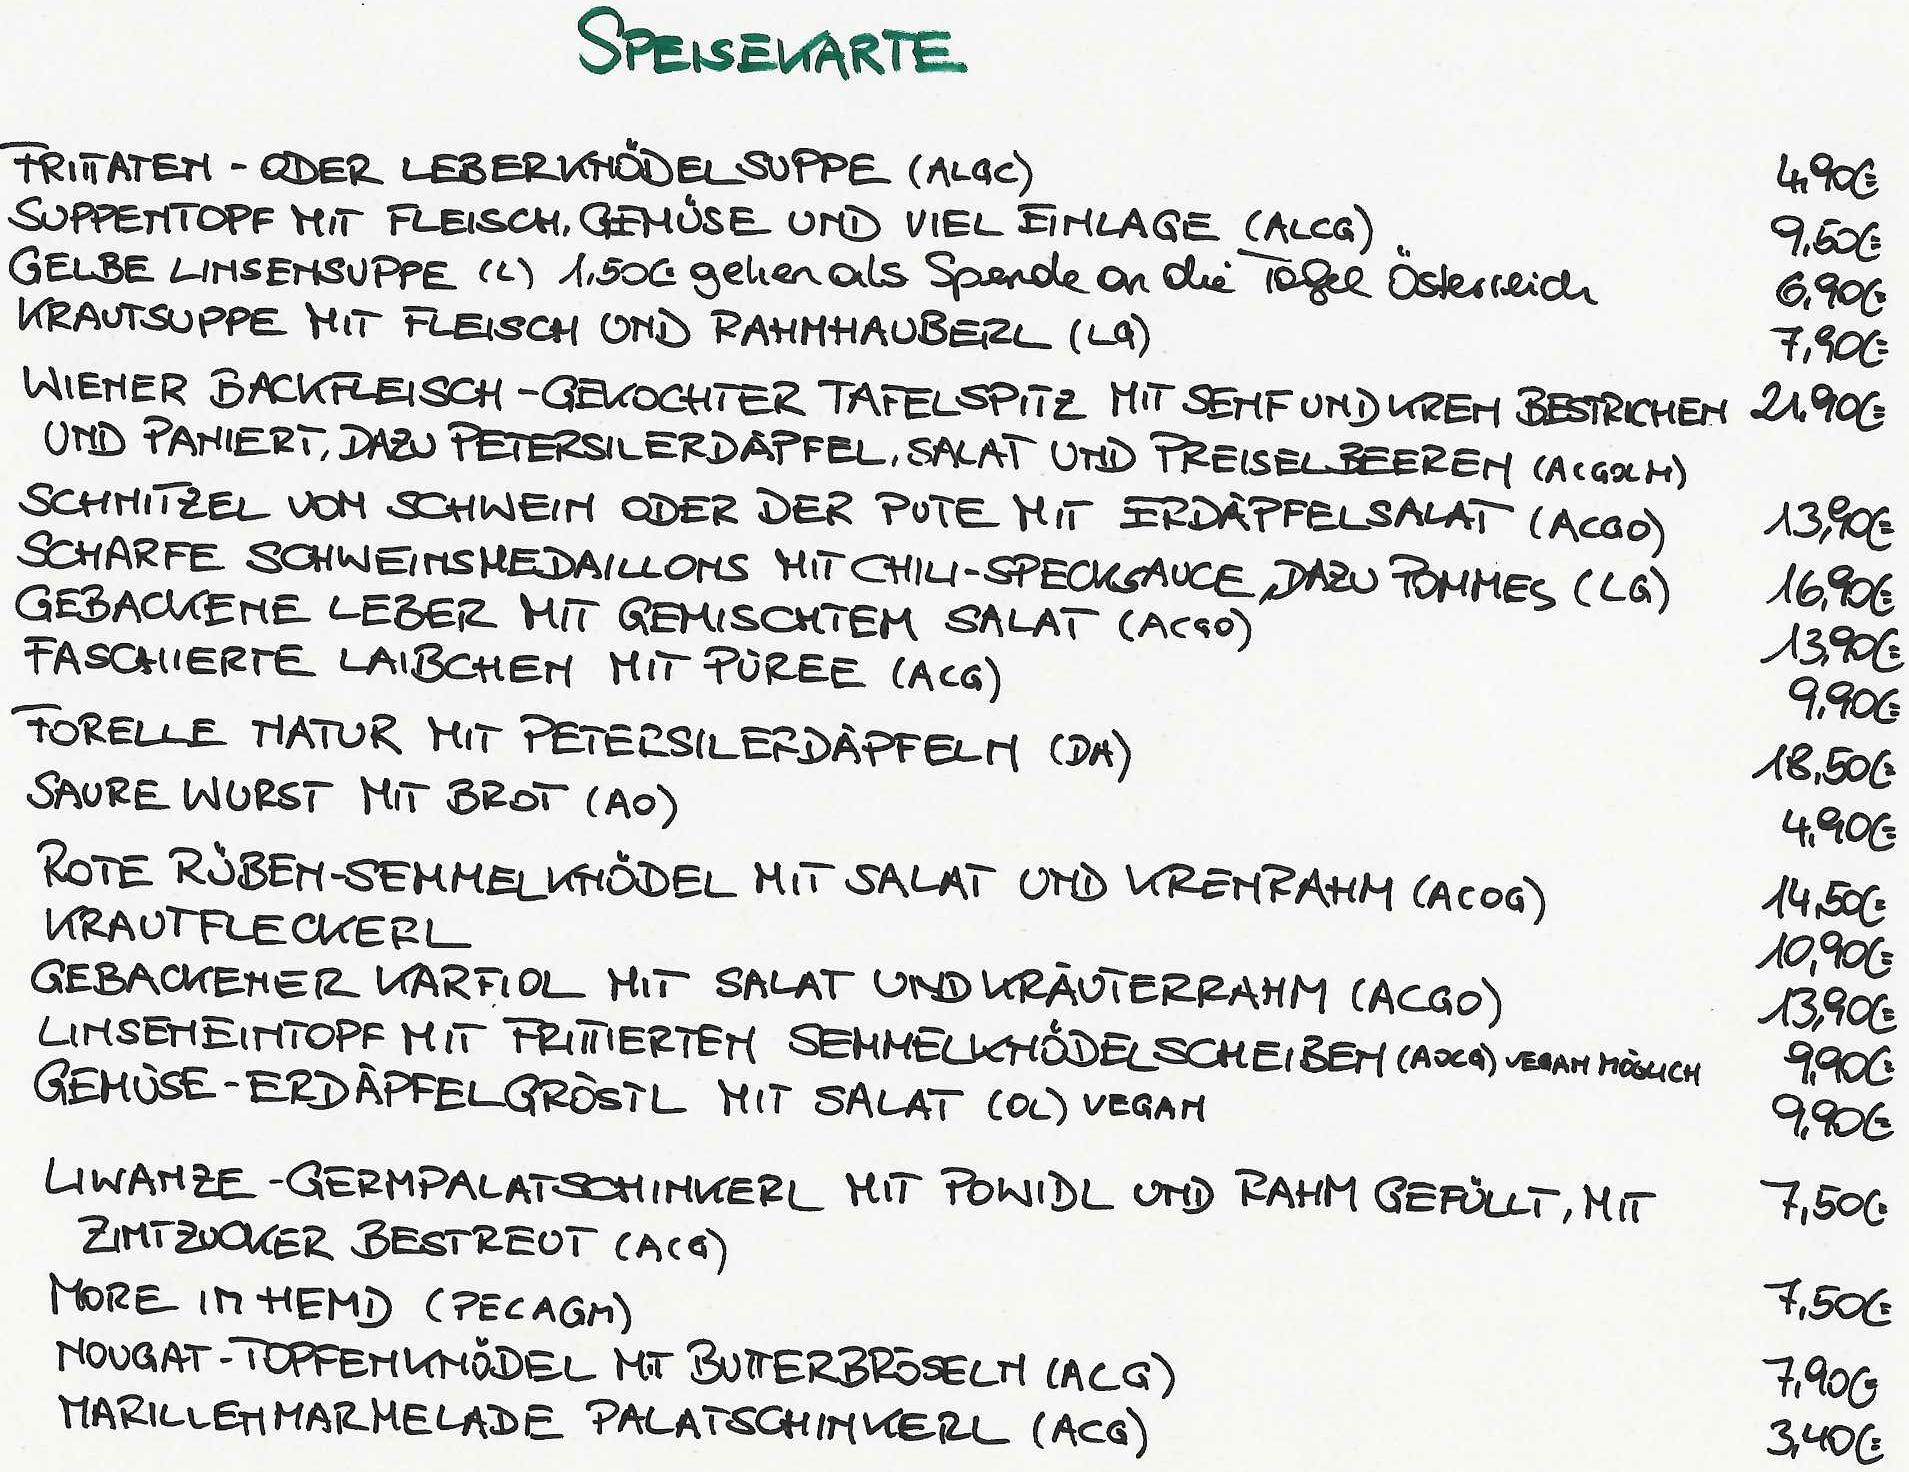 SPEISEKARTE
FRITTATEN- ODER LEBERKNÖDELSUPPE (ALGC) 4,90€
SUPPENTOPF MIT FLEISCH, GEMÜSE UND VIEL EINLAGE (ALCG) 9,50€
GELBE LINSENSUPPE (L) 1,50€ gehen als Spende an die Tafel Österreich 6,90€
KRAUTSUPPE MIT FLEISCH UND RAHMHAUBERL (LG) 7,90€
WIENER BACKFLEISCH - GEKOCHTER TAFELSPITZ MIT SENF UND KREN BESTRICHEN 21,90€
UND PANIERT, DAZU PETERSILERDÄPFEL, SALAT UND PREISELBEEREN (ACGOLM)
SCHNITZEL VOM SCHWEIN ODER DER PUTE MIT ERDÄPFELSALAT (ACGO) 13,90€
SCHARFE SCHWEINSMEDAILLONS MIT CHILI-SPECKSAUCE, DAZU POMMES (LG) 16,90€
GEBACKENE LEBER MIT GEMISCHTEM SALAT (ACGO) 13,90€
FASCHIERTE LAIBCHEN MIT PÜREE (ACG) 9,90€
FORELLE NATUR MIT PETERSILERDÄPFELN (DA) 18,50€
SAURE WURST MIT BROT (AO) 4,90€
ROTE RÜBEN-SEMMELKNÖDEL MIT SALAT UND KRENRAHM (ACOG) 14,50€
KRAUTFLECKERL 10,90€
GEBACKENER KARFIOL MIT SALAT UND KRÄUTERRAHM (ACGO) 13,90€
LINSENEINTOPF MIT FRITTIERTEN SEMMELKNÖDELSCHEIBEN (AOCG) VEGAN MÖGLICH 9,90€
GEMÜSE-ERDÄPFELGRÖSTL MIT SALAT (OL) VEGAN 9,90€
LIWANZE - GERMPALATSCHINKERL MIT POWIDL UND RAHM GEFÜLLT, MIT 7,50€
ZIMTZUCKER BESTREUT (ACG)
MORE IM HEMD (PECAGM) 7,50€
NOUGAT-TOPFENKNÖDEL MIT BUTTERBRÖSELN (ACG) 7,90€
MARILLENMARMELADE PALATSCHINKERL (ACG) 3,40€